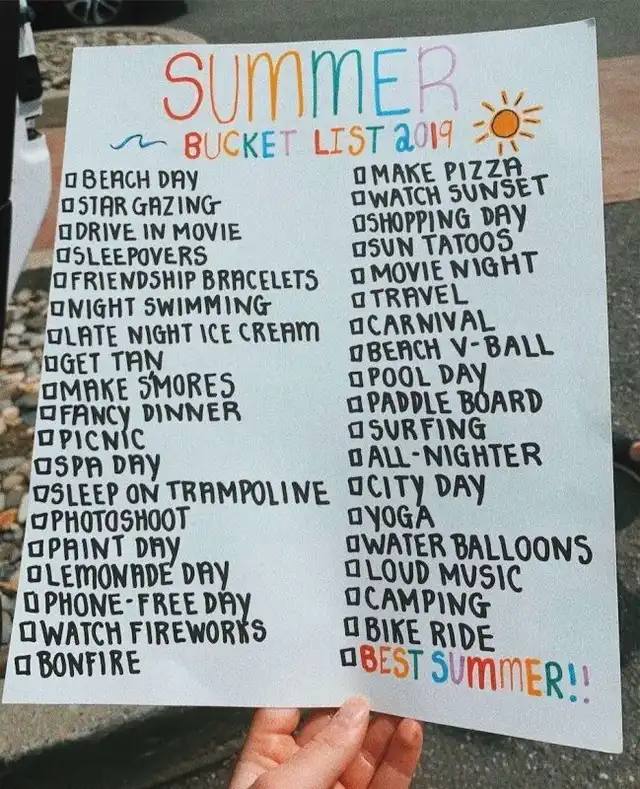 SUMMER
BUCKET LIST 2019
BEACH DAY
STAR GAZING
DRIVE IN MOVIE
SLEEPOVERS
FRIENDSHIP BRACELETS
NIGHT SWIMMING
LATE NIGHT ICE CREAM
GET TAN
MAKE S'MORES
FANCY DINNER
PICNIC
SPA DAY
SLEEP ON TRAMPOLINE
PHOTOSHOOT
PAINT DAY
LEMONADE DAY
PHONE-FREE DAY
WATCH FIREWORKS
BONFIRE
MAKE PIZZA
WATCH SUNSET
SHOPPING DAY
SUN TATOOS
MOVIE NIGHT
TRAVEL
CARNIVAL
BEACH V-BALL
POOL DAY
PADDLE BOARD
SURFING
ALL-NIGHTER
CITY DAY
YOGA
WATER BALLOONS
LOUD MUSIC
CAMPING
BIKE RIDE
BEST SUMMER!!